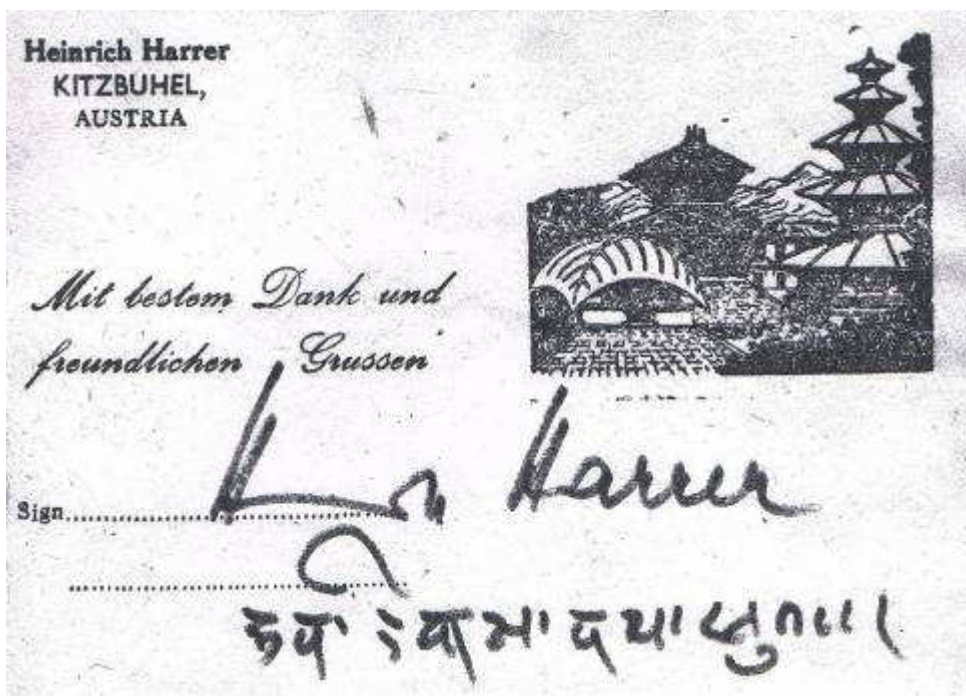 Heinrich Harrer
KITZBUHEL,
AUSTRIA
Mit bestem Dank und
freundlichen Grussen
Harrer
Sign